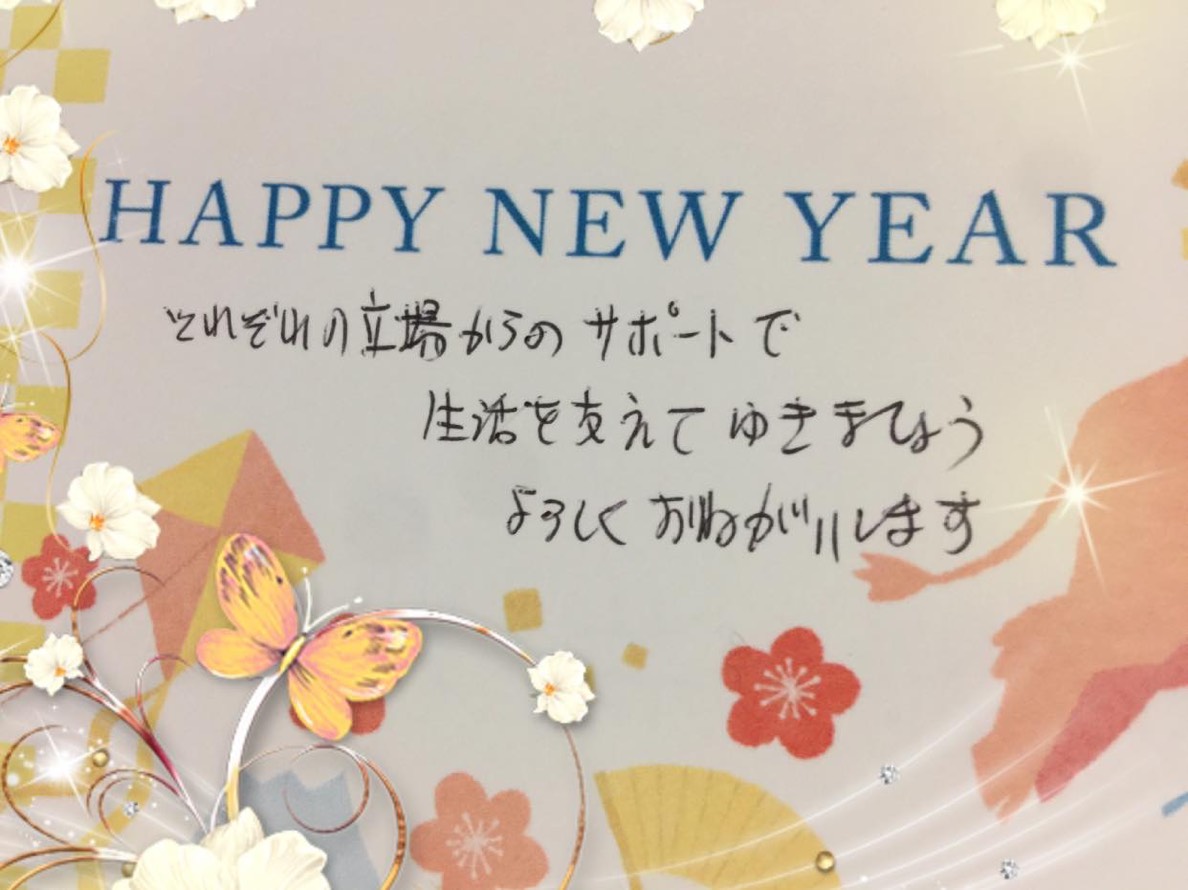 HAPPY NEW YEAR
それぞれの立場からのサポートで
生活を支えてゆきましょう
よろしくおねがいします